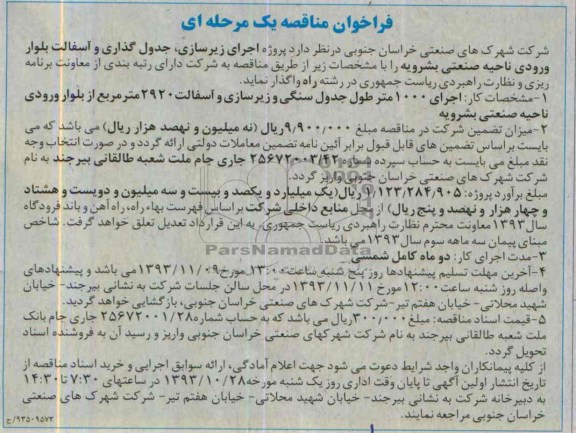 فراخوان مناقصه یک مرحله ای
شرکت شهرک های صنعتی خراسان جنوبی درنظر دارد پروژه اجرای زیرسازی، جدول گذاری و آسفالت بلوار
ورودی ناحیه صنعتی بشرویه را با مشخصات زیر از طریق مناقصه به شرکت دارای رتبه بندی از معاونت برنامه
ریزی و نظارت راهبردی ریاست جمهوری در رشته راه واگذار نماید.
۱-مشخصات کار: اجرای ۱۰۰۰ متر طول جدول سنگی و زیرسازی و آسفالت ۲۹۲۰ متر مربع از بلوار ورودی
ناحیه صنعتی بشرویه
۲-میزان تضمین شرکت در مناقصه مبلغ ۹/۹۰۰/۰۰۰ ریال (نه میلیون و نهصد هزار ریال) می باشد که می
بایست براساس تضمین های قابل قبول برابر آئین نامه تضمین معاملات دولتی ارائه گردد و در صورت انتخاب وجه
نقد مبلغ می بایست به حساب سپرده شماره ۲۵۶۷۲۰۰۳/۴۲ جاری جام ملت شعبه طالقانی بیرجند به نام
شرکت شهرک های صنعتی خراسان جنوبی واریز گردد.
مبلغ برآورد پروژه: ۱/۱۲۳/۲۸۴/۹۰۵ ریال (یک میلیارد و یکصد و بیست و سه میلیون و دویست و هشتاد
و چهار هزار و نهصد و پنج ریال) از محل منابع داخلی شرکت براساس فهرست بهاء راه، راه آهن و باند فرودگاه
سال ۱۳۹۳ معاونت محترم نظارت راهبردی ریاست جمهوری. به این قرارداد تعدیل تعلق خواهد گرفت. شاخص
مبنای پیمان سه ماهه سوم سال ۱۳۹۳ می باشد.
۳-مدت اجرای کار: دو ماه کامل شمسی
۴-آخرین مهلت تسلیم پیشنهادها روز پنج شنبه ساعت ۱۳:۰۰ مورخ ۱۳۹۳/۱۱/۰۹ می باشد و پیشنهادهای
واصله روز شنبه ساعت ۱۲:۰۰ مورخ ۱۳۹۳/۱۱/۱۱ در محل سالن جلسات شرکت به نشانی بیرجند- خیابان
شهید محلاتی- خیابان هفتم تیر-شرکت شهرک های صنعتی خراسان جنوبی، بازگشایی خواهد گردید.
۵-قیمت اسناد مناقصه: مبلغ ۳۰۰/۰۰۰ ریال می باشد که به حساب شماره ۲۵۶۷۲۰۰۱/۲۸ جاری جام بانک
ملت شعبه طالقانی بیرجند به نام شرکت شهرکهای صنعتی خراسان جنوبی واریز و رسید آن به فروشنده اسناد
تحویل گردد.
از کلیه پیمانکاران واجد شرایط دعوت می شود جهت اعلام آمادگی، ارائه سوابق اجرایی و خرید اسناد مناقصه از
تاریخ انتشار اولین آگهی تا پایان وقت اداری روز یک شنبه مورخه ۱۳۹۳/۱۰/۲۸ در ساعتهای ۷:۳۰ تا ۱۴:۳۰
به دبیرخانه شرکت به نشانی بیرجند- خیابان شهید محلاتی- خیابان هفتم تیر- شرکت شهرک های صنعتی
خراسان جنوبی مراجعه نمایند.
۹۳۵۰۹۵۷۳/ج
ParsNamadData